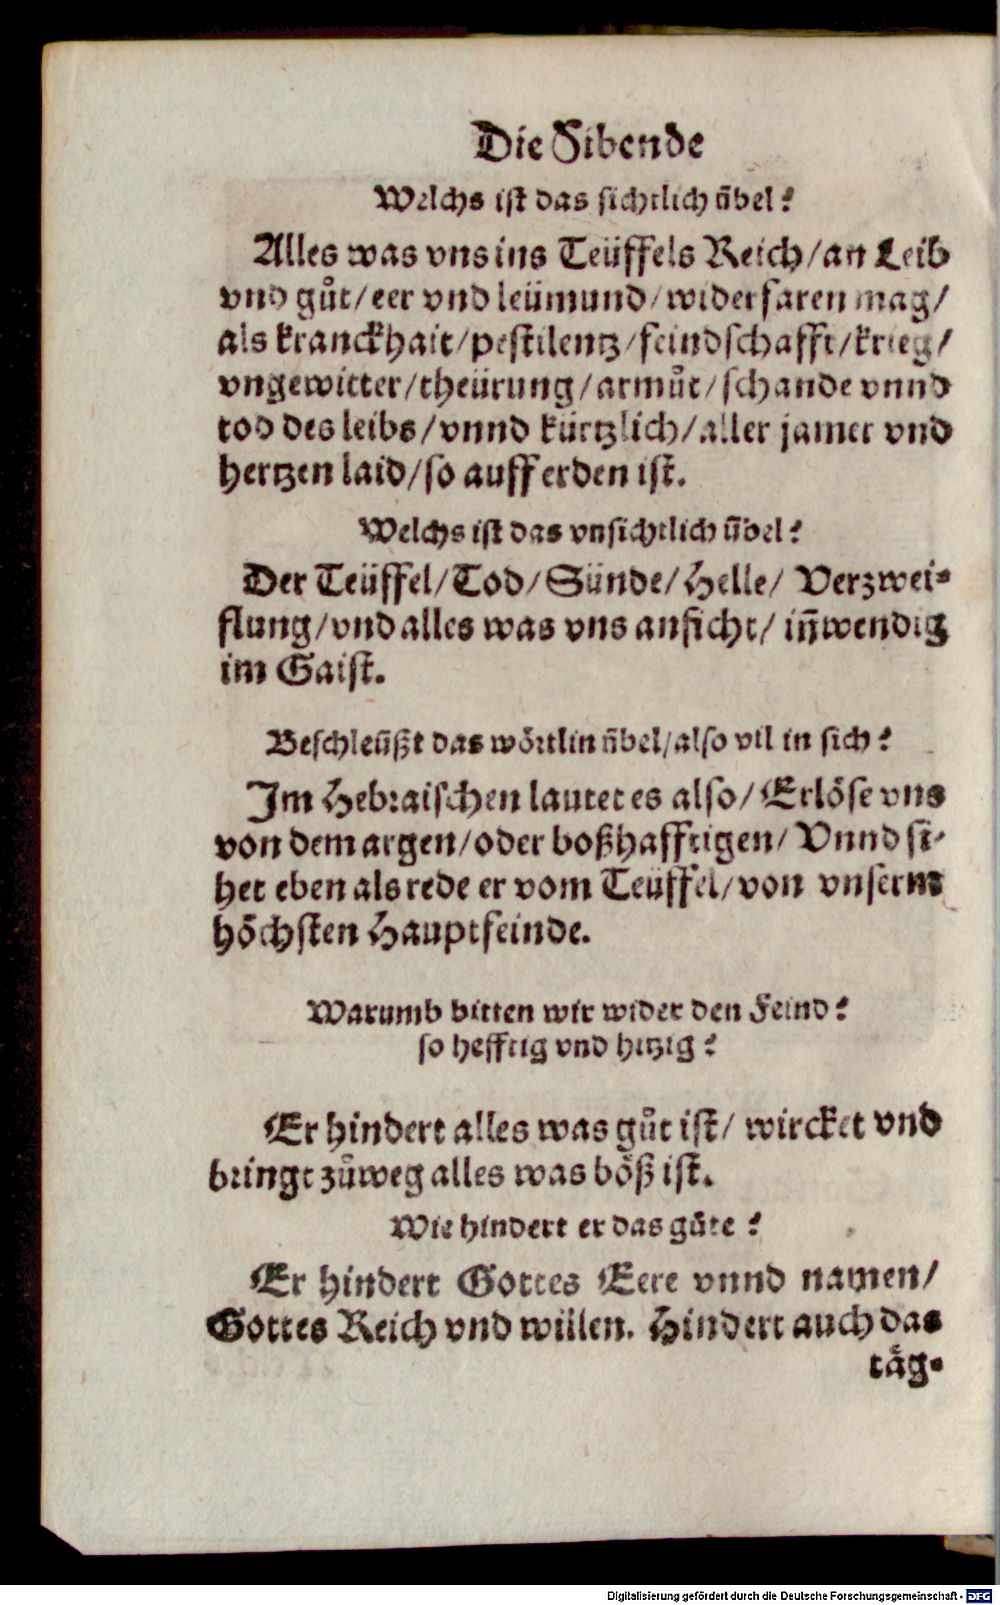 Die Sibende
Welchs ist das sichtlich übel?
Alles was vns ins Teüffels Reich/an Leib
vnd gůt/eer vnd leümund/widerfaren mag/
als kranckhait/pestilentz/feindschafft/krieg/
vngewitter/theürung/armůt/schande vnnd
tod des leibs/vnnd kürtzlich/aller jamer vnd
hertzen laid/so auff erden ist.
Welchs ist das vnsichtlich übel?
Der Teüffel/Tod/Sünde/Helle/ Verzwei-
flung/vnd alles was vns anficht/ iñwendig
im Gaist.
Beschleüßt das wörtlin übel/also vil in sich?
Im Hebraischen lautet es also/Erlöse vns
von dem argen/oder boßhafftigen/ Vnnd si-
het eben als rede er vom Teüffel/von vnserm
höchsten Hauptfeinde.
Warumb bitten wir wider den Feind?
so hefftig vnd hitzig?
Er hindert alles was gůt ist/ wircket vnd
bringt zůweg alles was böß ist.
Wie hindert er das gůte?
Er hindert Gottes Eere vnnd namen/
Gottes Reich vnd willen. Hindert auch das
täg-
Digitalisierung gefördert durch die Deutsche Forschungsgemeinschaft - DFG